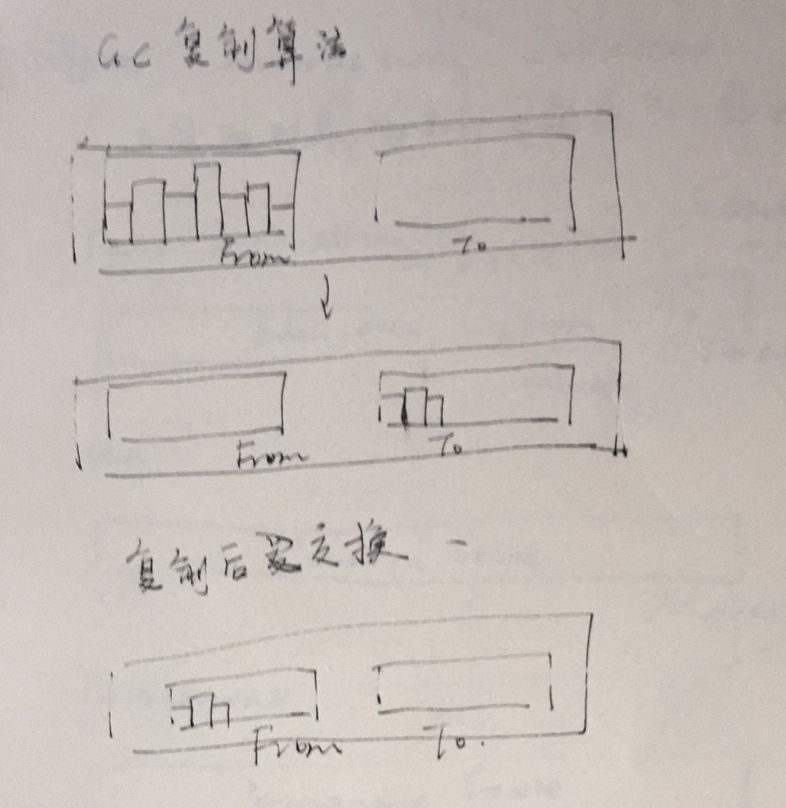 GC 复制算法
From To
From To
复制后要交换
From To.